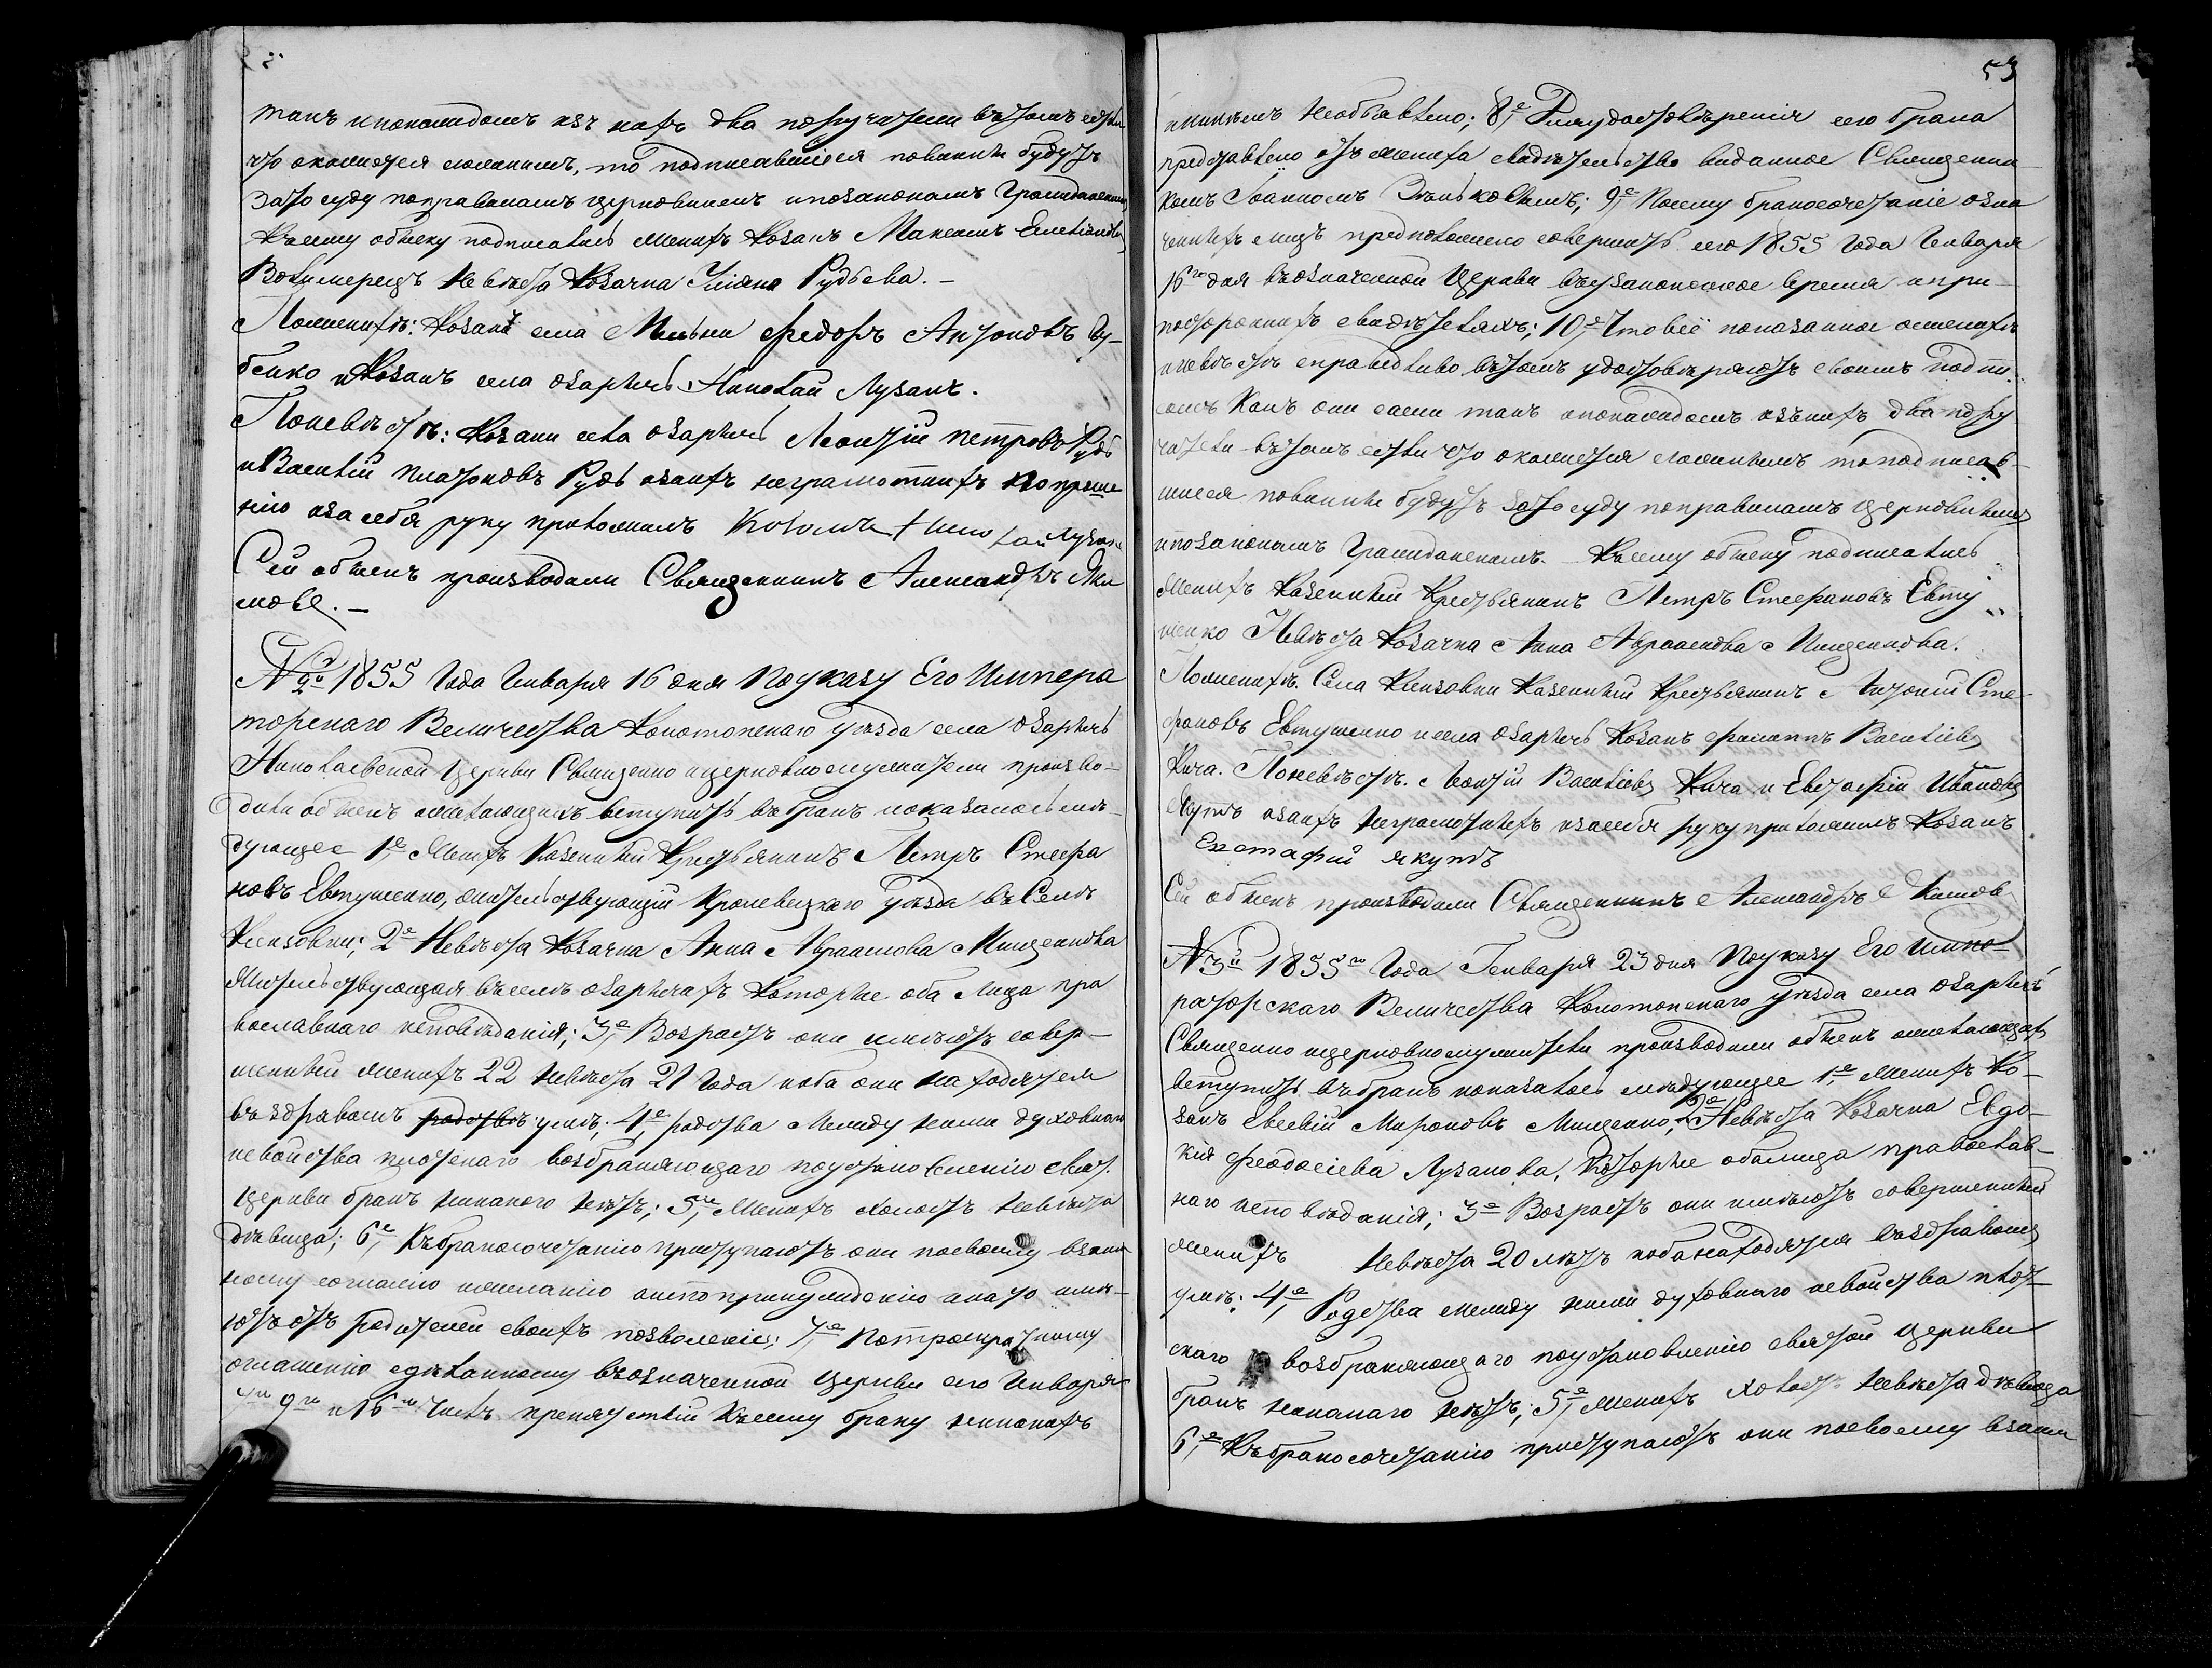 такъ и по каждомъ изъ нихъ два поручителя въ томъ если
что окажется ложнымъ, то подписавшіеся повинны будутъ
за то суду по правиламъ церковнымъ и по законамъ Гражданскимъ
Къ сему обыску подписались Женихъ Козакъ Максимъ
Невѣста Козачка Уліяна Рудъева. –
По женихѣ: Козакъ села Федоръ Антоновъ Ру-
бенко и Козакъ села Озаричь Николай Лузанъ.
По невѣстѣ: Козаки села Озаричь Леонтій Петровъ Рудь
и Василій Платоновъ Рудь а за ихъ неграмотныхъ по проше
нію и за себя руку приложилъ Николай Лузанъ
Сей обыскъ производили Священникъ Александръ Яки
мовъ. –
№ 2й 1855 Года Генваря 16 дня По указу Его Импера
торскаго Величества Конотопскаго уѣзда села Озаричь
Николаевской Церкви Священно и церковнослужители произво-
дили обыскъ о желающихъ вступить въ бракъ и оказалось слѣ-
дующее 1е Женихъ Казенный Крестьянинъ Петръ Стефа
новъ Евтушенко, жительствующій Кролевецкаго уѣзда въ Селѣ
2е Невѣста Козачка Анна Авраамова Мищенкова
Жительствующая въ селѣ Озаричахъ Которые оба Лица пра
вославнаго исповѣданія; 3е Возрастъ они имѣютъ совер-
шенный Женихъ 22 Невѣста 21 Года и оба они находятся
въ здравомъ родствѣ умѣ; 4е родства Между ними духовнаго
и свойства плотскаго возбраняющаго по установленію свят.
Церкви бракъ никакого нѣтъ; 5е Женихъ Холостъ Невѣста
дѣвица; 6е Къ бракосочетанію приступаютъ они по своему взаим
ному согласію и желанію а не по принужденію и на то имѣ-
ютъ отъ родителей своихъ позволеніе; 7е По троекратному
оглашенію сдѣланному въ означенной Церкви сего Генваря
9го и 16го Числъ препятствій Къ сему браку никакихъ
53
никѣмъ не объявлено; 8е Для удостовѣренія сего брака
представлено отъ жениха свидѣтельство выданное Священни
комъ Іоанномъ 9е По сему бракосочетаніе озна
ченныхъ лицъ предположено совершить сего 1855 Года Генваря
16го дня въ означенной Церкви въ узаконенное время и при
постороннихъ свидѣтеляхъ; 10е Что всё показанное о женихѣ
и невѣстѣ справедливо въ томъ удостовѣряютъ своимъ подпи
сомъ Какъ они сами такъ и по каждомъ изъ нихъ два пору
чителя въ томъ если что окажется ложнымъ то подписав-
шіеся повинны будутъ за то суду по правиламъ Церковнымъ
и по законамъ Гражданскимъ. – Къ сему обыску подписались
Женихъ Казенный Крестьянинъ Петръ Стефановъ Евту
шенко Невѣста Козачка Анна Авраамова Мищенкова.
По женихѣ. Села Казенный Крестьянинъ Антоній Сте-
фановъ Евтушенко и села Озаричь Козакъ Филиппъ Васильевъ
Кича. По невѣстѣ. Леонтій Васильевъ Кича и Евстафій Ивановъ
Якутъ а за ихъ неграмотныхъ и за себя руку приложилъ Козакъ
Евстафий якутъ
Сей обыскъ производили Священникъ Александръ Якимовъ
№ 3й 1855го Года Генваря 23 дня По указу Его Импе-
раторскаго Величества Конотопскаго уѣзда села Озаричь
Священно и церковнослужители производили обыскъ о желающихъ
вступить въ бракъ и оказалось слѣдующее 1е Женихъ Ко-
закъ Евсевій Мироновъ Мищенко, 2е Невѣста Козачка Евдо-
кія Феодосіева Лузанова, Которые оба лица православ-
наго исповѣданія; 3е Возрастъ они имѣютъ совершенный
Женихъ Невѣста 20 лѣтъ и оба находятся въ здравомъ
умѣ; 4е Родства между ними духовнаго и свойства плот-
скаго возбраняющаго по установленію святой Церкви
бракъ никакаго нѣтъ; 5е Женихъ Холостъ Невѣста дѣвица
6е Къ бракосочетанію приступаютъ они по своему взаим